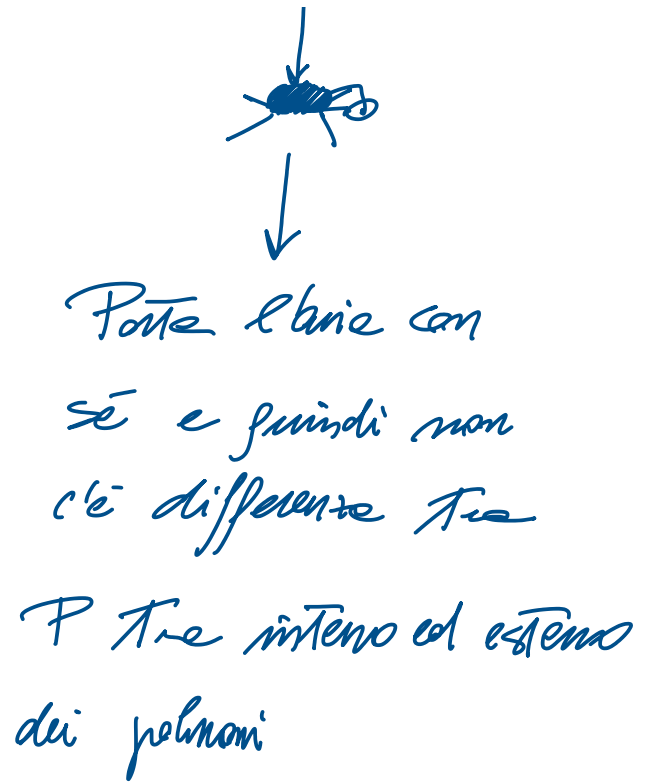 Porta l'aria con
sé e quindi non
c'è differenza tra
P tra interno ed esterno
dei polmoni